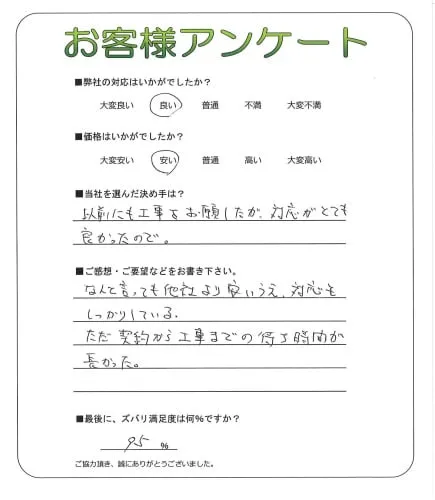 お客様アンケート
■弊社の対応はいかがでしたか?
大変良い 良い 普通 不満 大変不満
■価格はいかがでしたか?
大変安い 安い 普通 高い 大変高い
■当社を選んだ決め手は?
以前にも工事をお願したが、対応がとても
良かったので。
■ご感想・ご要望などをお書き下さい。
なんと言っても他社より安いうえ、対応も
しっかりしている。
ただ契約から工事までの待ち時間が
長かった。
■最後に、ズバリ満足度は何%ですか?
95 %
ご協力頂き、誠にありがとうございました。